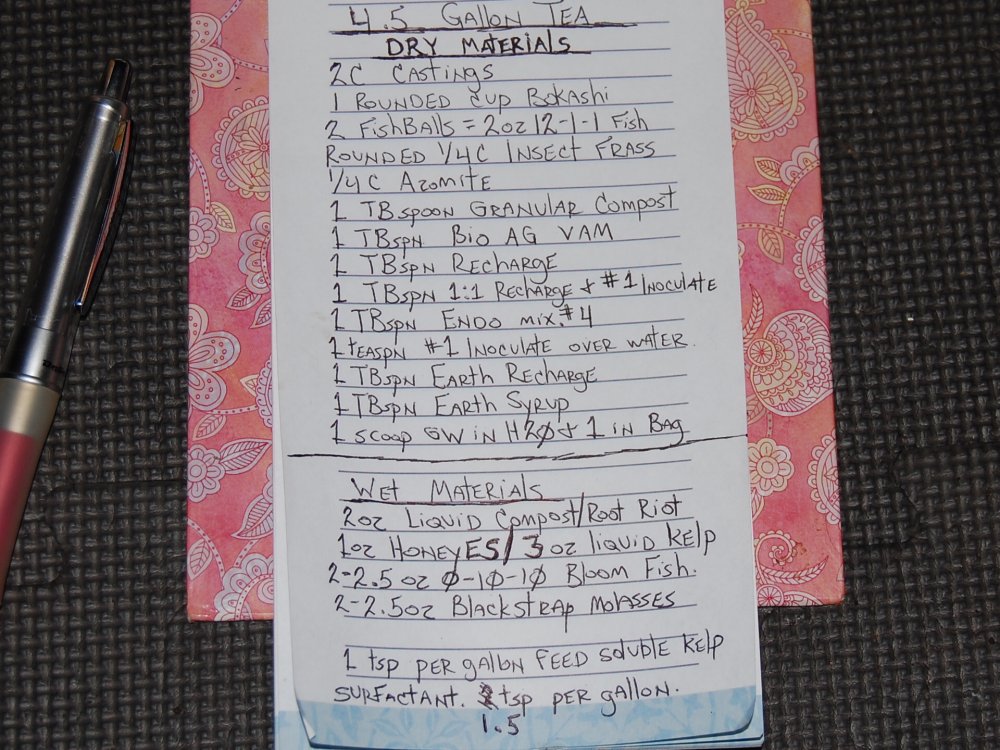 4.5 GALLON TEA
DRY MATERIALS
2C CASTINGS
1 ROUNDED CUP BOKASHI
2 FISHBALLS = 2oz 12-1-1 FISH
ROUNDED 1/4C INSECT FRASS
1/4C AZOMITE
1 TBSPOON GRANULAR COMPOST
1 TBSPN BIO AG VAM
1 TBSPN RECHARGE
1 TBSPN 1:1 RECHARGE & #1 INOCULATE
1 TBSPN ENDO MIX.#4
1 TEASPN #1 INOCULATE OVER WATER.
1 TBSPN EARTH RECHARGE
1 TBSPN EARTH SYRUP
1 SCOOP GW IN H2Ø & 1 IN BAG
WET MATERIALS
2oz LIQUID COMPOST/ROOT RIOT
1oz HONEY ES/ 3 oz LIQUID KELP
2-2.5 oz Ø-1Ø-1Ø BLOOM FISH.
2-2.5oz BLACKSTRAP MOLASSES
1 tsp PER GALLON FEED SOLUBLE KELP
SURFACTANT. tsp PER GALLON.
1.5